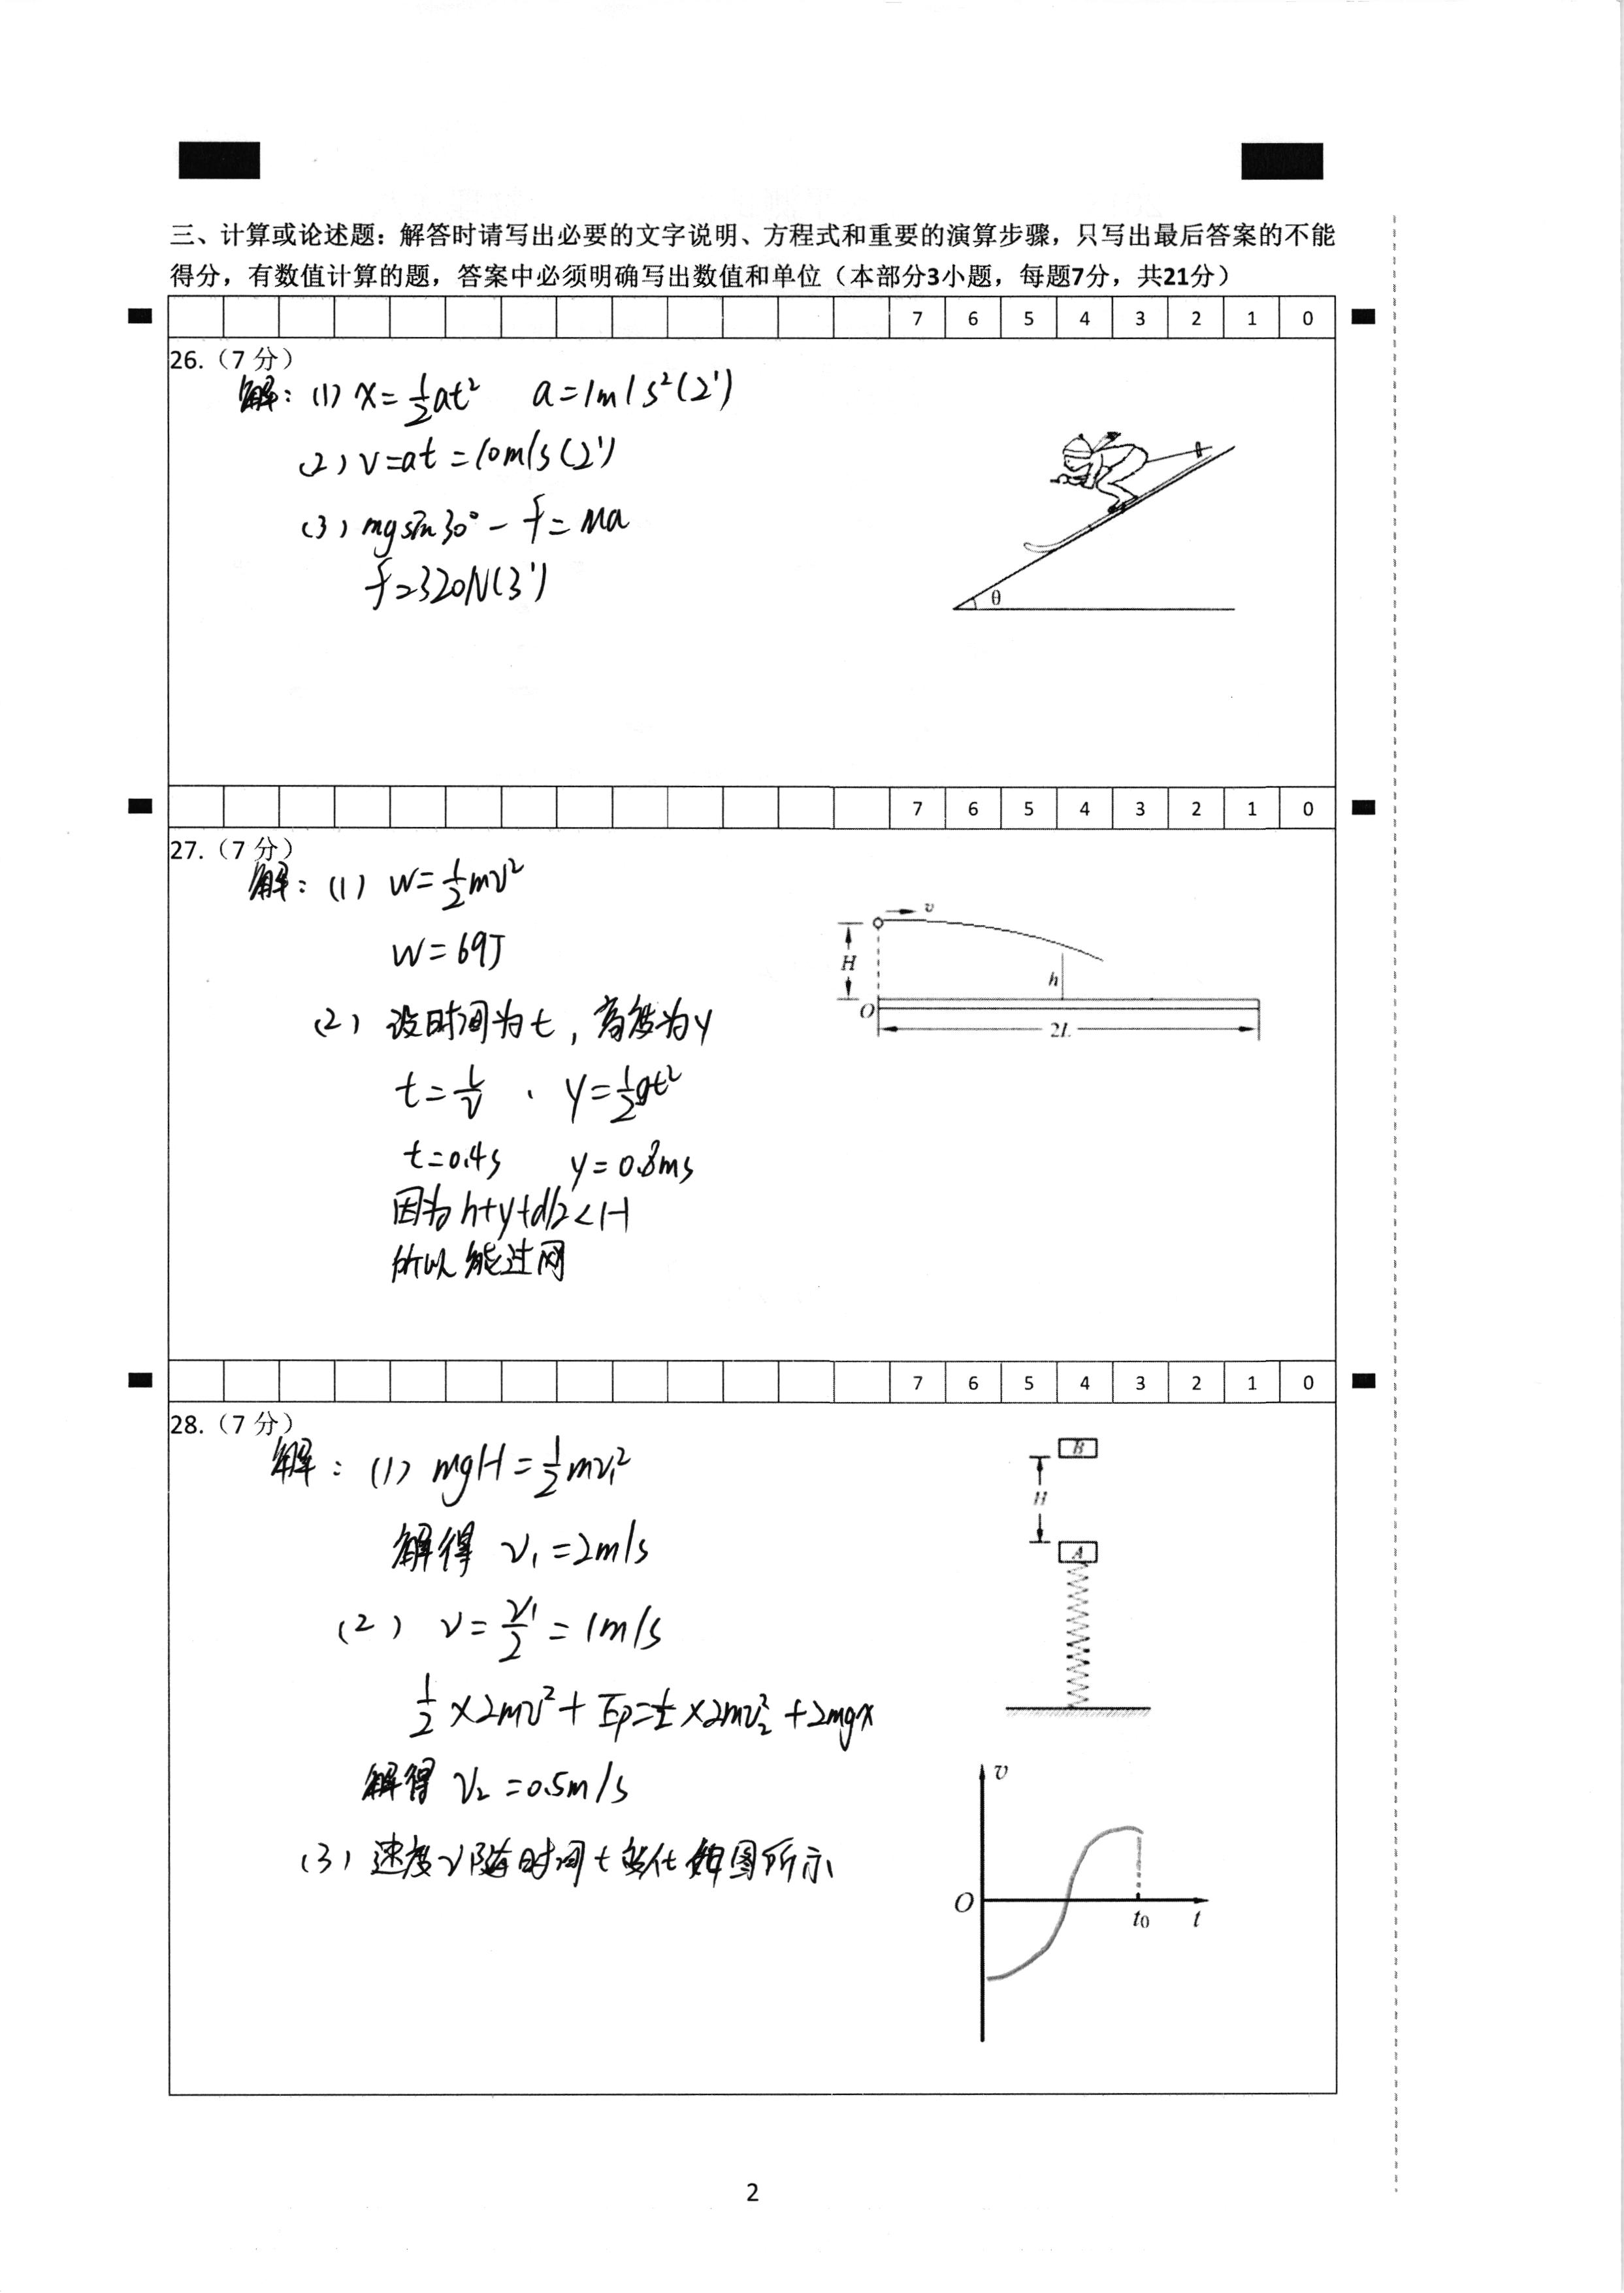 三、计算或论述题：解答时请写出必要的文字说明、方程式和重要的演算步骤，只写出最后答案的不能
得分，有数值计算的题，答案中必须明确写出数值和单位（本部分3小题，每题7分，共21分）
7 6 5 4 3 2 1 0
26.（7 分）
解：(1) x=½at² a=1m/s²(2')
(2) v=at=10m/s(2')
(3) mgsin30°-f=ma
f=320N(3')
θ
7 6 5 4 3 2 1 0
27.（7 分）
解：(1) W=½mv²
W=69J
(2) 设时间为t，高度为y
t=L/v 、 y=½gt²
t=0.4s y=0.8ms
因为h+y+d/2<H
所以能过网
v
H
h
O
2L
7 6 5 4 3 2 1 0
28.（7 分）
解：(1) mgH=½mv₁²
解得 v₁=2m/s
(2) v=v₁/2=1m/s
½×2mv²+Ep=½×2mv₂²+2mgx
解得 v₂=0.5m/s
(3) 速度v随时间t变化的图所示
B
H
A
v
O
t₀
t
2